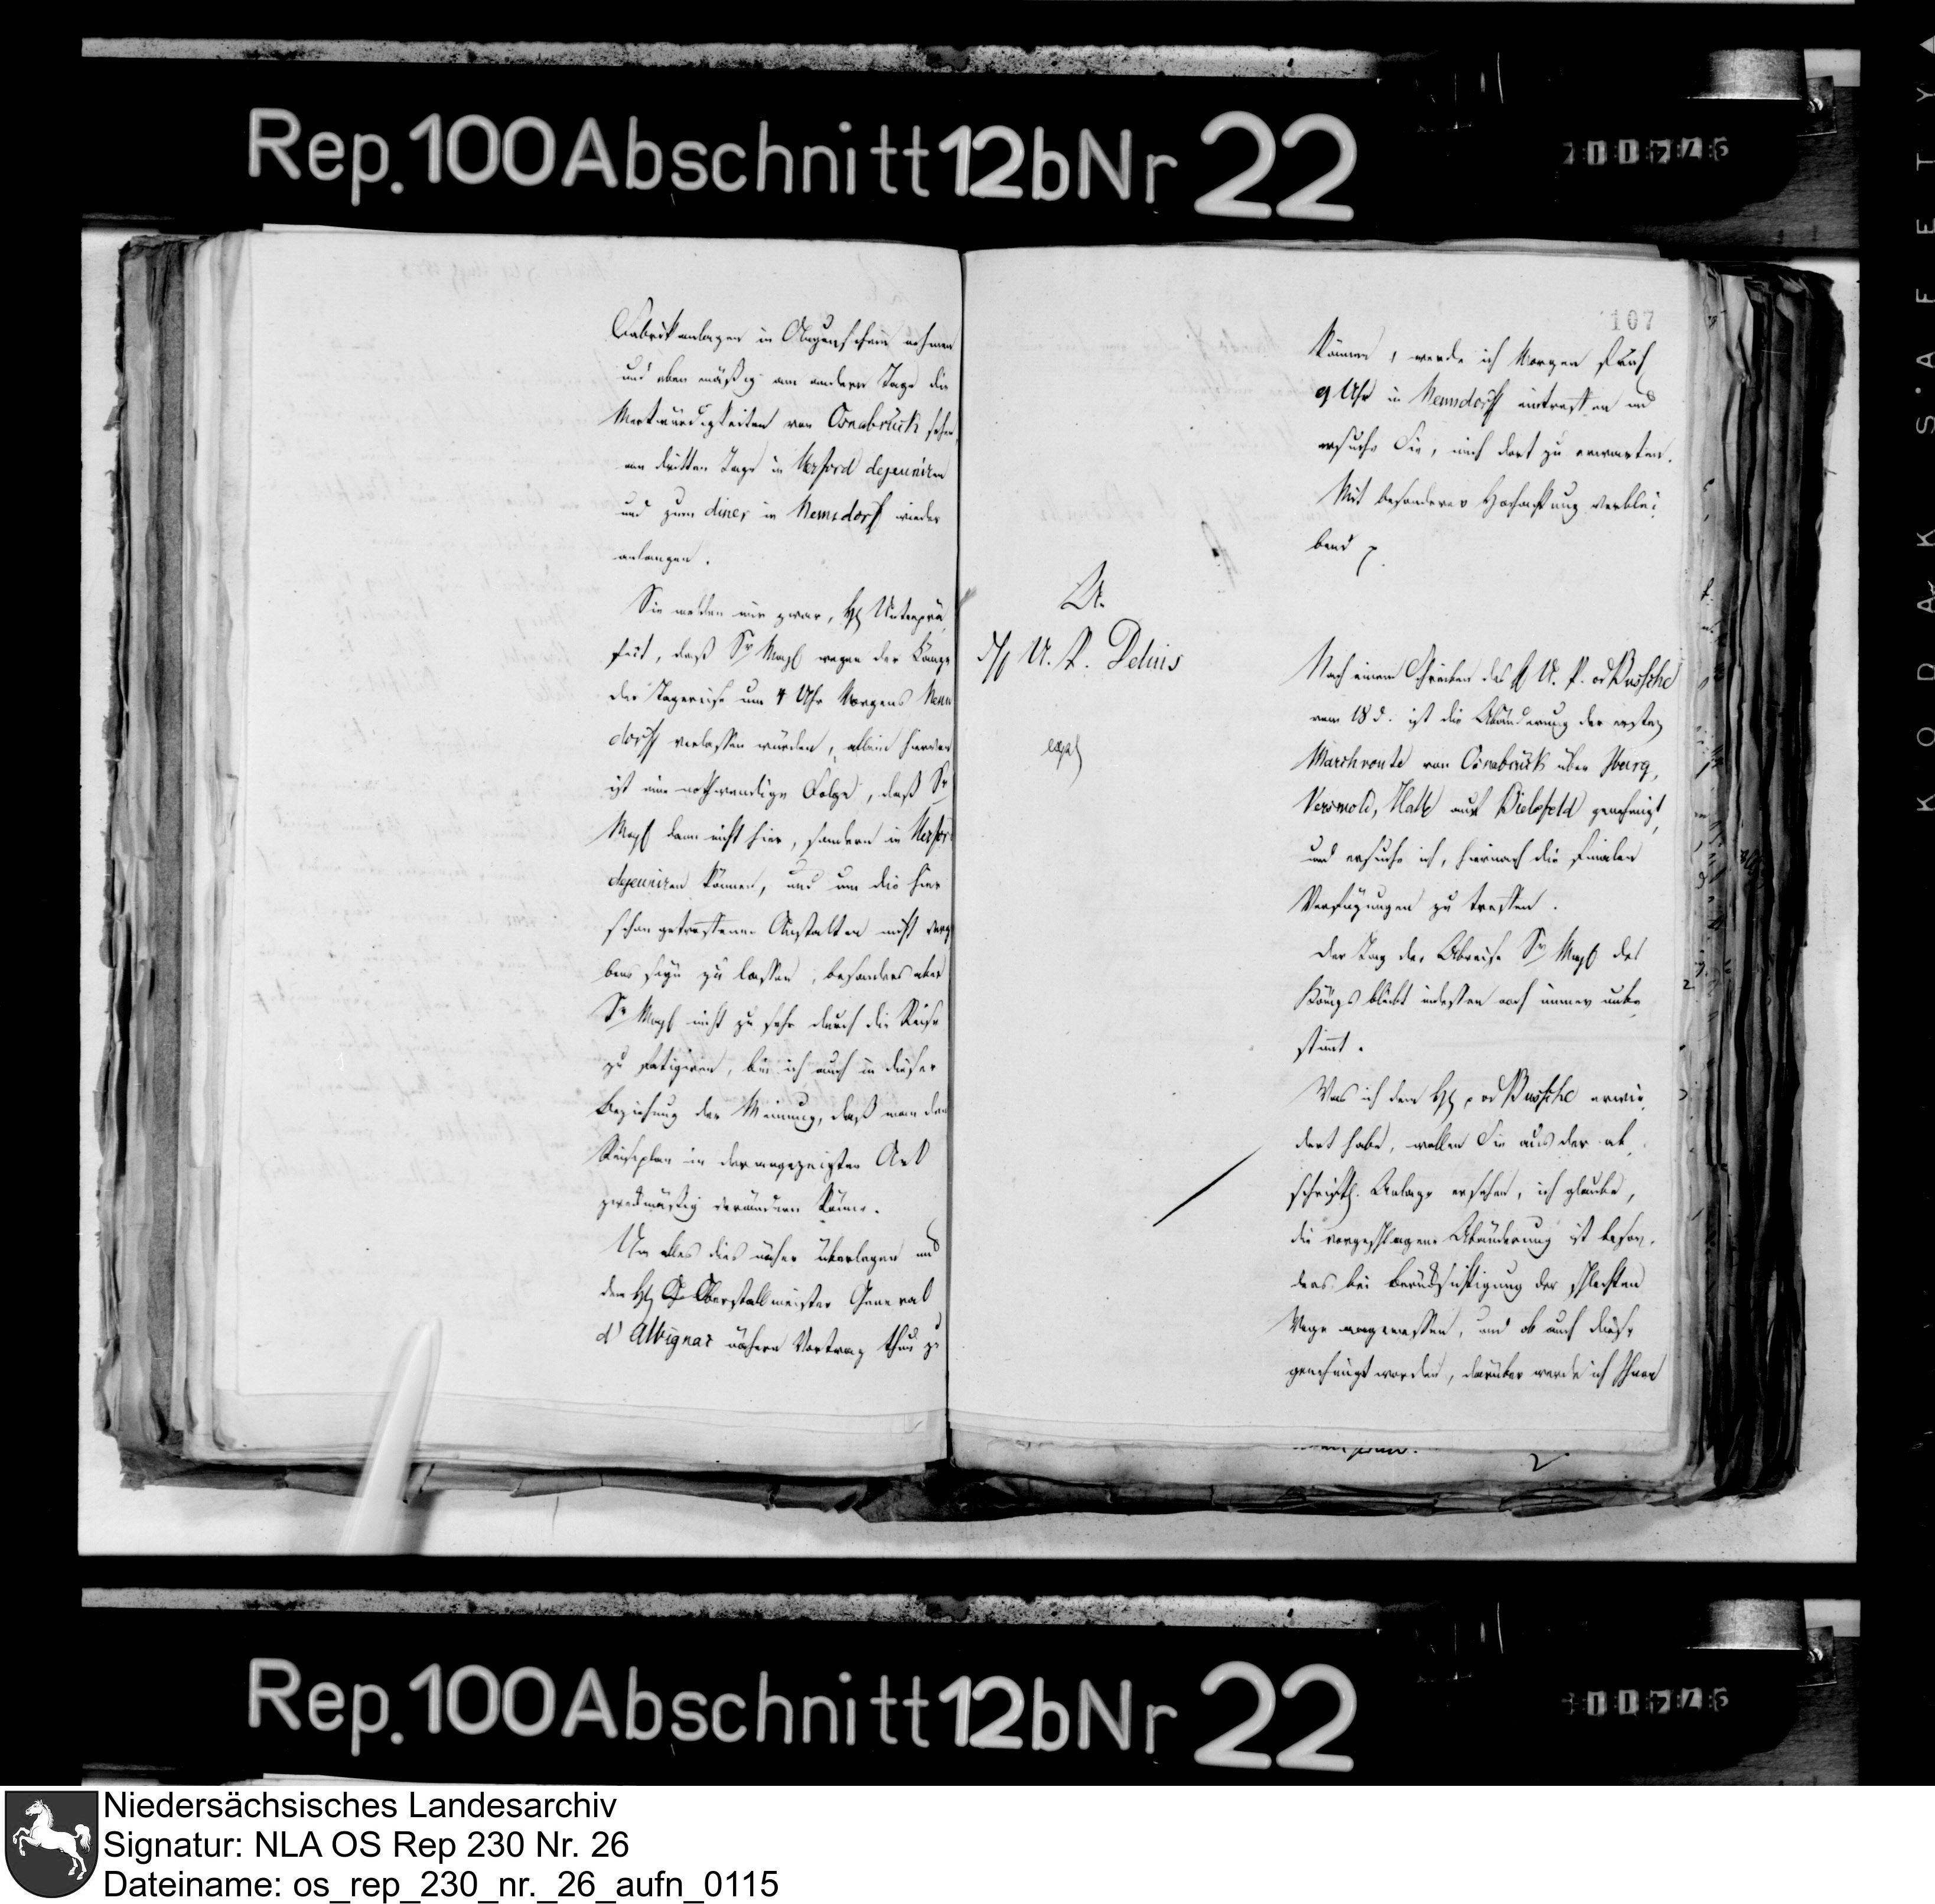 Rep. 100 Abschnitt 12b Nr 22
Fabrikanlagen in Augenschein nehmen
und eben mäßig am andern Tage die
Merkwürdigkeiten von Osnabrück sehen,
am dritten Tage in Herford dejeuniren
und zum diner in Nenndorff wieder
anlangen.
Sie melden mir zwar, H Unterprä
fect, daß Sr Maj wegen der Länge
der Tagereise um 4 Uhr Morgens Nenn
dorff verlassen würden, allein hiervon
ist eine nothwendige Folge, daß Sr
Maj dann nicht hier, sondern in Herfor
dejeuniren können, und um die hier
schon getroffenen Anstalten nicht verge
bens seyn zu lassen, besonders aber
Sr Maj nicht zu sehr durch die Reise
zu fatigiren, bin ich auch in dieser
Beziehung der Meinung, daß man den
Reiseplan in der angezeigten Art
zweckmäßig verändern könne.
Um alles dies näher überlegen und
dem H Oberstallmeister General
d'Albignac nähern Vortrag thun zu
107
können, werde ich Morgen früh
9 Uhr in Nenndorff eintreffen und
ersuche Sie, mich dort zu erwarten.
Mit besonderer Hochachtung verblei
bend
A.
U. P. Delius
Nach einem Schreiben des H U. P. vd Bussche
vom 18 d. ist die Abänderung der ersten
Marchroute von Osnabrück über Iburg,
Versmold, Halle auf Bielefeld genehmigt,
und ersuche ich, hiernach die finalen
Verfügungen zu treffen.
Der Tag der Abreise Sr Maj des
Königs bleibt indessen noch immer unbe
stimt.
Was ich dem H vd Bussche erwie
dert habe, wollen Sie aus der ab
schriftl. Anlage ersehen, ich glaube,
die vorgeschlagene Abänderung ist beson
ders bei Berücksichtigung der schlechten
Wege angemessen, und ob auch diese
genehmigt worden, darüber werde ich Ihnen
Rep. 100 Abschnitt 12b Nr 22
KODAK S'AFETY
Niedersächsisches Landesarchiv
Signatur: NLA OS Rep 230 Nr. 26
Dateiname: os_rep_230_nr._26_aufn_0115